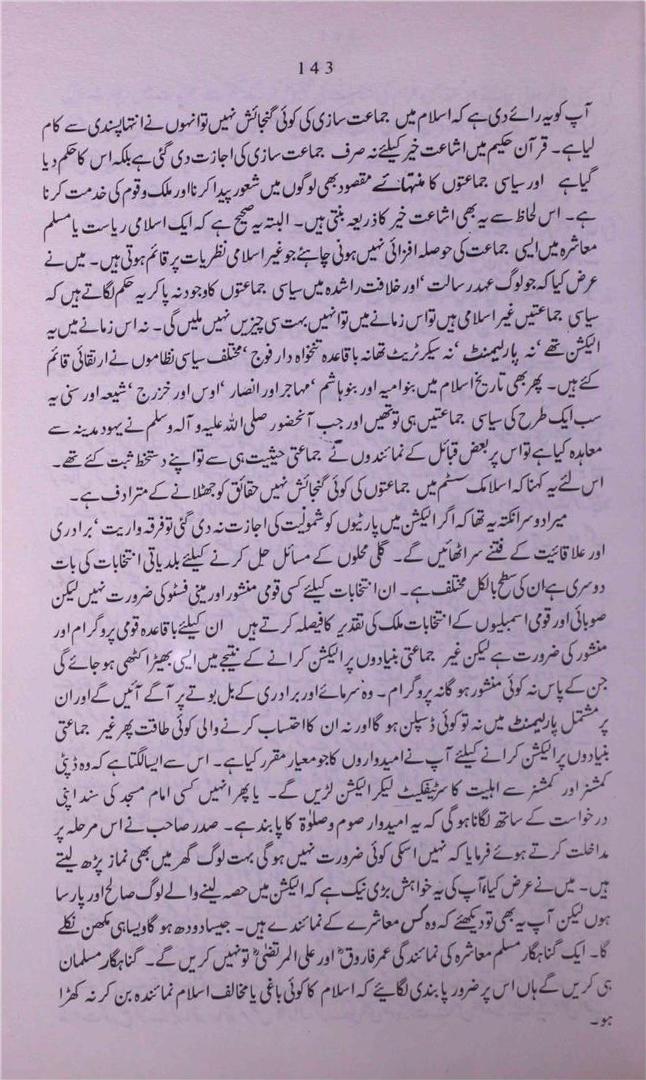 143
آپ کو یہ رائے دی ہے کہ اسلام میں جماعت سازی کی کوئی گنجائش نہیں تو انہوں نے انتہا پسندی سے کام
لیا ہے۔ قرآن حکیم میں اشاعت خیر کیلئے نہ صرف جماعت سازی کی اجازت دی گئی ہے بلکہ اس کا حکم دیا
گیا ہے اور سیاسی جماعتوں کا منتہائے مقصود بھی لوگوں میں شعور پیدا کرنا اور ملک و قوم کی خدمت کرنا
ہے۔ اس لحاظ سے یہ بھی اشاعت خیر کا ذریعہ بنتی ہیں۔ البتہ یہ صحیح ہے کہ ایک اسلامی ریاست یا مسلم
معاشرہ میں ایسی جماعت کی حوصلہ افزائی نہیں ہونی چاہئے جو غیر اسلامی نظریات پر قائم ہوتی ہیں۔ میں نے
عرض کیا کہ جو لوگ عہد رسالت ‘ اور خلافت راشدہ میں سیاسی جماعتوں کا وجود نہ پا کر یہ حکم لگاتے ہیں کہ
سیاسی جماعتیں غیر اسلامی ہیں تو اس زمانے میں تو انہیں بہت سی چیزیں نہیں ملیں گی۔ نہ اس زمانے میں یہ
الیکشن تھے ‘ نہ پارلیمنٹ ‘ نہ سیکرٹریٹ تھا نہ باقاعدہ تنخواہ دار فوج ‘ مختلف سیاسی نظاموں نے ارتقائی قائم
کئے ہیں۔ پھر بھی تاریخ اسلام میں بنو امیہ اور بنو ہاشم ‘ مہاجر اور انصار ‘ اوس اور خزرج ‘ شیعہ اور سنی یہ
سب ایک طرح کی سیاسی جماعتیں ہی تو تھیں اور جب آنحضور صلی اللہ علیہ و آلہ وسلم نے یہود مدینہ سے
معاہدہ کیا ہے تو اس پر بعض قبائل کے نمائندوں نے جماعتی حیثیت ہی سے تو اپنے دستخط ثبت کئے تھے۔
اس لئے یہ کہنا کہ اسلامک سسٹم میں جماعتوں کی کوئی گنجائش نہیں حقائق کو جھٹلانے کے مترادف ہے۔
میرا دوسرا نکتہ یہ تھا کہ اگر الیکشن میں پارٹیوں کو شمولیت کی اجازت نہ دی گئی تو فرقہ واریت ‘ برادری
اور علاقائیت کے فتنے سر اٹھائیں گے۔ گلی محلوں کے مسائل حل کرنے کیلئے بلدیاتی انتخابات کی بات
دوسری ہے ان کی سطح بالکل مختلف ہے۔ ان انتخابات کیلئے کسی قومی منشور اور مینی فسٹو کی ضرورت نہیں لیکن
صوبائی اور قومی اسمبلیوں کے انتخابات ملک کی تقدیر کا فیصلہ کرتے ہیں ان کیلئے باقاعدہ قومی پروگرام اور
منشور کی ضرورت ہے لیکن غیر جماعتی بنیادوں پر الیکشن کرانے کے نتیجے میں ایسی بھیڑ اکٹھی ہو جائے گی
جن کے پاس نہ کوئی منشور ہو گا نہ پروگرام۔ وہ سرمائے اور برادری کے بل بوتے پر آگے آئیں گے اور ان
پر مشتمل پارلیمنٹ میں نہ تو کوئی ڈسپلن ہو گا اور نہ ان کا احتساب کرنے والی کوئی طاقت پھر غیر جماعتی
بنیادوں پر الیکشن کرانے کیلئے آپ نے امیدواروں کا جو معیار مقرر کیا ہے۔ اس سے ایسا لگتا ہے کہ وہ ڈپٹی
کمشنر اور کمشنر سے اہلیت کا سرٹیفکیٹ لیکر الیکشن لڑیں گے۔ یا پھر انہیں کسی امام مسجد کی سند اپنی
درخواست کے ساتھ لگانا ہو گی کہ یہ امیدوار صوم و صلوٰۃ کا پابند ہے۔ صدر صاحب نے اس مرحلہ پر
مداخلت کرتے ہوئے فرمایا کہ نہیں اسکی کوئی ضرورت نہیں ہو گی بہت لوگ گھر میں بھی نماز پڑھ لیتے
ہیں۔ میں نے عرض کیا ‘ آپ کی یہ خواہش بڑی نیک ہے کہ الیکشن میں حصہ لینے والے لوگ صالح اور پارسا
ہوں لیکن آپ یہ بھی تو دیکھئے کہ وہ کس معاشرے کے نمائندے ہیں۔ جیسا دودھ ہو گا ویسا ہی مکھن نکلے
گا۔ ایک گناہگار مسلم معاشرہ کی نمائندگی عمر فاروقؓ اور علی المرتضیٰؓ تو نہیں کریں گے۔ گناہگار مسلمان
ہی کریں گے ہاں اس پر ضرور پابندی لگائیے کہ اسلام کا کوئی باغی یا مخالف اسلام نمائندہ بن کر نہ کھڑا
ہو۔